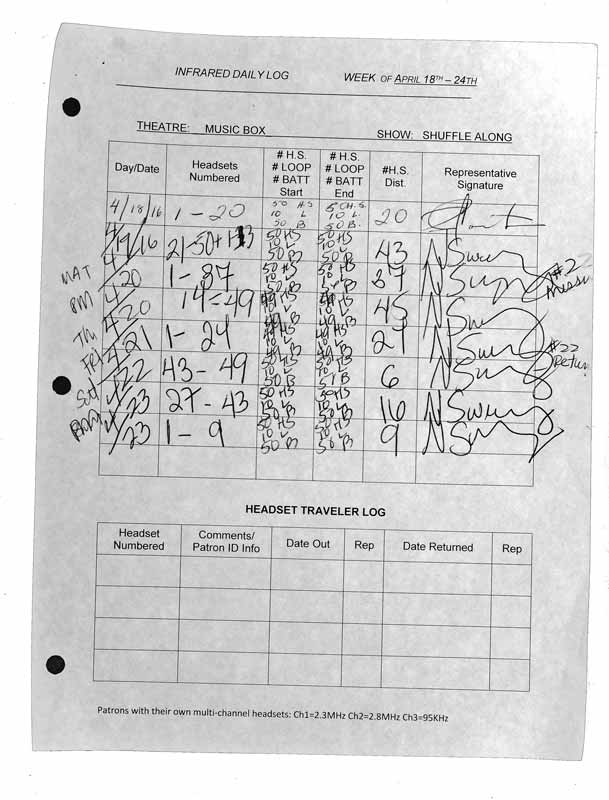 INFRARED DAILY LOG WEEK OF APRIL 18TH – 24TH
THEATRE: MUSIC BOX SHOW: SHUFFLE ALONG
Day/Date Headsets Numbered # H.S. # LOOP # BATT Start # H.S. # LOOP # BATT End #H.S. Dist. Representative Signature
4/18/16 1 – 20 50 H.S 10 L 50 B 50 H.S. 10 L. 50 B. 20
4/19/16 21-50+1-13 50 HS 10 L 50 B 50 HS 10 L 50 B 43 N Sweeny
MAT 4/20 1 – 37 50 HS 10 L 50 B 37
4/20 14 – 49 10 L 49 B 49 B 45
Th 4/21 1 – 24 10 L 49 B 10 L 49 B
Fri 4/22 43 – 49 50 HS 10 L 50 B 50 HS 10 L 51 B 6 #22 Return
Sat 4/23 27 – 43 50 HS 10 L 50 B 50 HS 10 L 50 B 16 N Sweeny
4/23 1 – 9 50 HS 10 L 50 B 50 HS 10 L 50 B 9
HEADSET TRAVELER LOG
Headset Numbered Comments/ Patron ID Info Date Out Rep Date Returned Rep
Patrons with their own multi-channel headsets: Ch1=2.3MHz Ch2=2.8MHz Ch3=95KHz